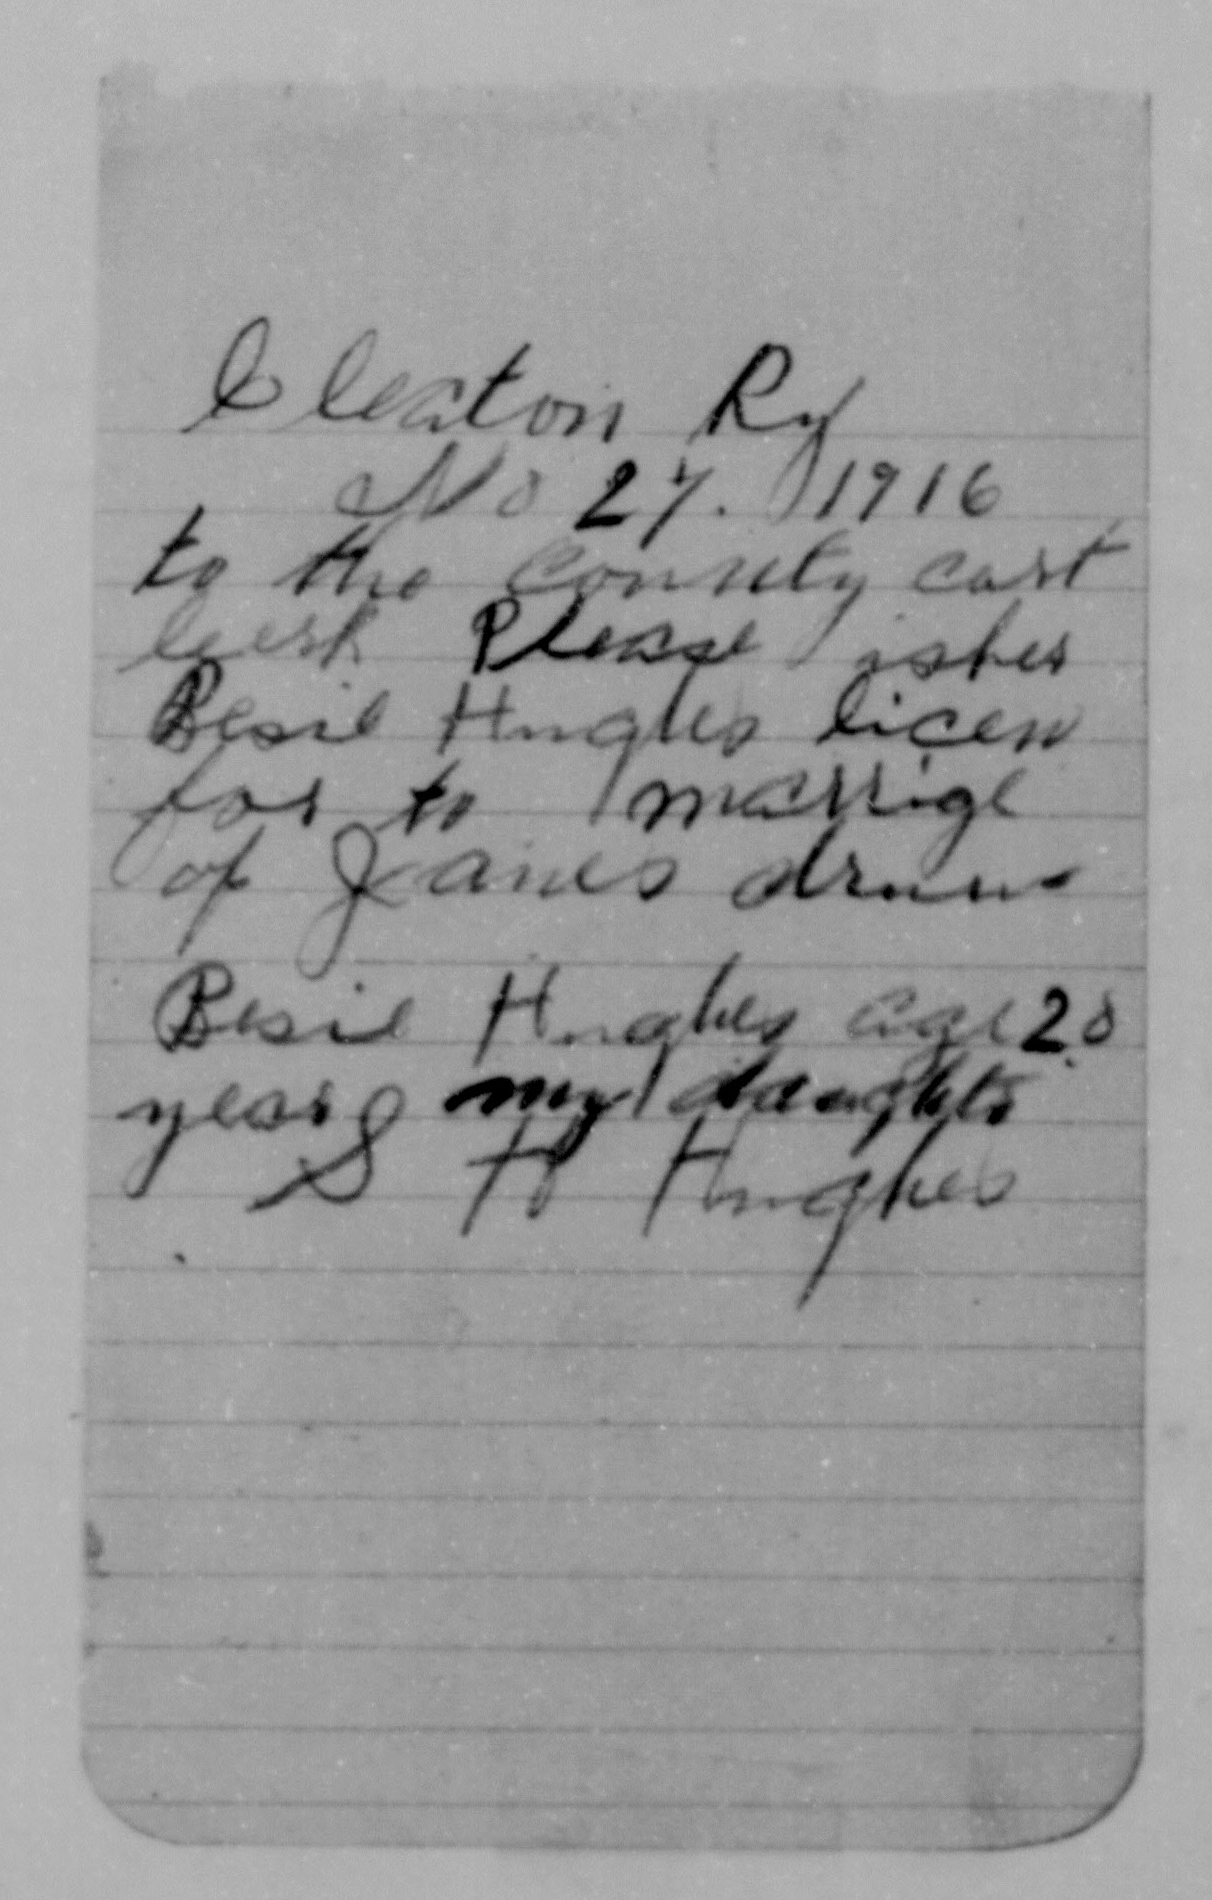 Cleaton Ky
No 27. 1916
to the County cort
lerk Please isher
Besie Hughes licen
for to marrige
of James drum
Besie Hughes age 20
years my daughter
S H Hughes